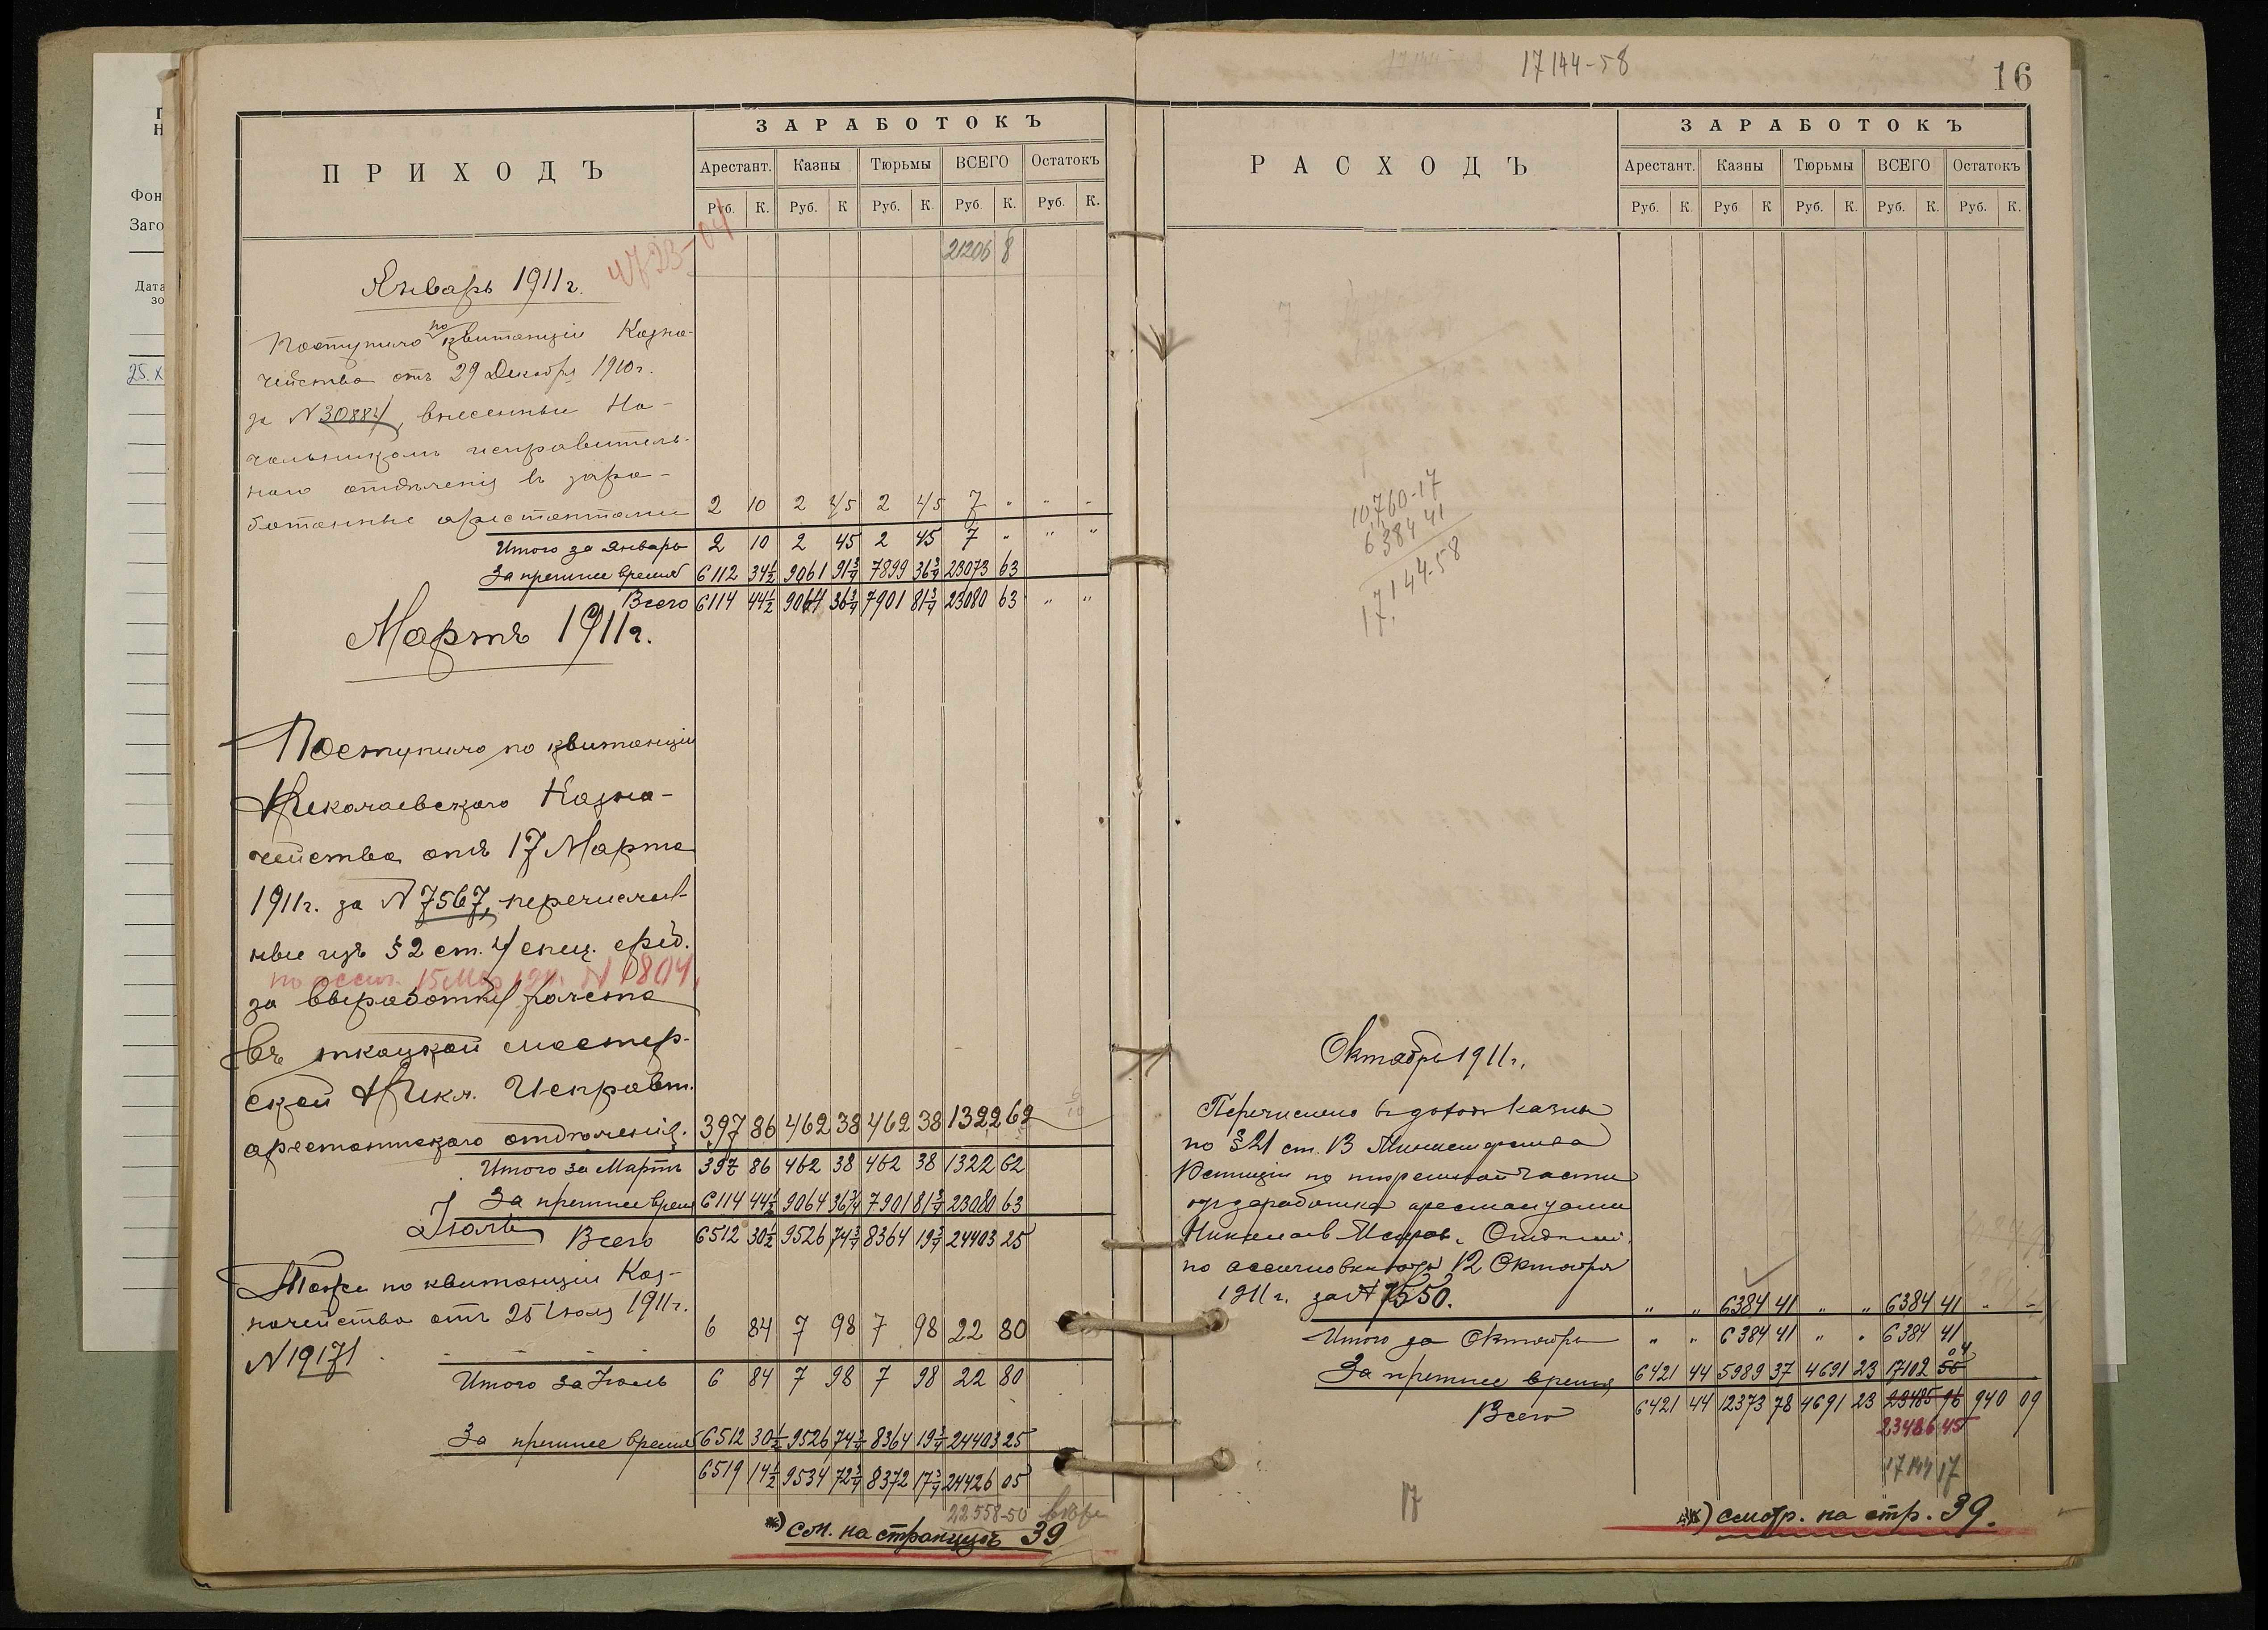 17144-58
16
ПРИХОДЪ
ЗАРАБОТОКЪ
Арестант. Казны Тюрьмы ВСЕГО Остатокъ
Руб. К. Руб. К Руб. К. Руб. К. Руб. К.
21206 8
Январь 1911 г.
Поступило по квитанціи Казна-
чейства отъ 29 Декабря 1910 г.
за № 30884, внесенные На-
чальникомъ исправитель-
наго отдѣленія въ зара-
ботанные арестантами 2 10 2 45 2 45 7 " " -
Итого за Январь 2 10 2 45 2 45 7 " " "
За прошлое время 6112 34½ 9061 91¾ 7899 36¾ 23073 63
Всего 6114 44½ 9064 36¾ 7901 81¾ 23080 63 " "
Мартъ 1911 г.
Поступило по квитанціи
Николаевскаго Казна-
чейства отъ 17 Марта
1911 г. за № 7567, перечислен-
ные изъ § 2 ст. 4 спец. сред.
по ассиг. 15 Мар 1911 № 1804,
за выработку холста
въ ткацкой мастер-
ской Никл. Исправит.
арестантскаго отдѣленія. 397 86 462 38 462 38 1322 62
Итого за Мартъ 397 86 462 38 462 38 1322 62
За прошлое время 6114 44½ 9064 36¾ 7901 81¾ 23080 63
Іюль Всего 6512 30½ 9526 74¾ 8364 19¾ 24403 25
Тоже по квитанціи Каз-
начейства отъ 25 Іюля 1911 г.
№ 19171 6 84 7 98 7 98 22 80
Итого за Іюль 6 84 7 98 7 98 22 80
За прошлое время 6512 30½ 9526 74¾ 8364 19¾ 24403 25
6519 14½ 9534 72¾ 8372 17¾ 24426 05
22558-50
*) см. на страницѣ 39
РАСХОДЪ
ЗАРАБОТОКЪ
Арестант. Казны Тюрьмы ВСЕГО Остатокъ
Руб. К. Руб К Руб. К. Руб. К. Руб. К.
10760-17
6384 41
17144-58
17.
Октябрь 1911 г.
Перечислено въ доходъ казны
по § 21 ст. 13 Министерства
Юстиціи по тюремной части
изъ заработка арестантами
Николаев Исправ. Отдѣлені.
по ассигновкѣ отъ 12 Октября
1911 г. за № 7550. " " 6384 41 " " 6384 41 " -
Итого за Октябрь " " 6384 41 " " 6384 41
За прошлое время 6421 44 5989 37 4691 23 17102 55 04
Всего 6421 44 12373 78 4691 23 23485 96 940 09
23486 45
17144 17
17
**) смотр. на стр. 39.
Фон
Заго
Дата
зо
25. X